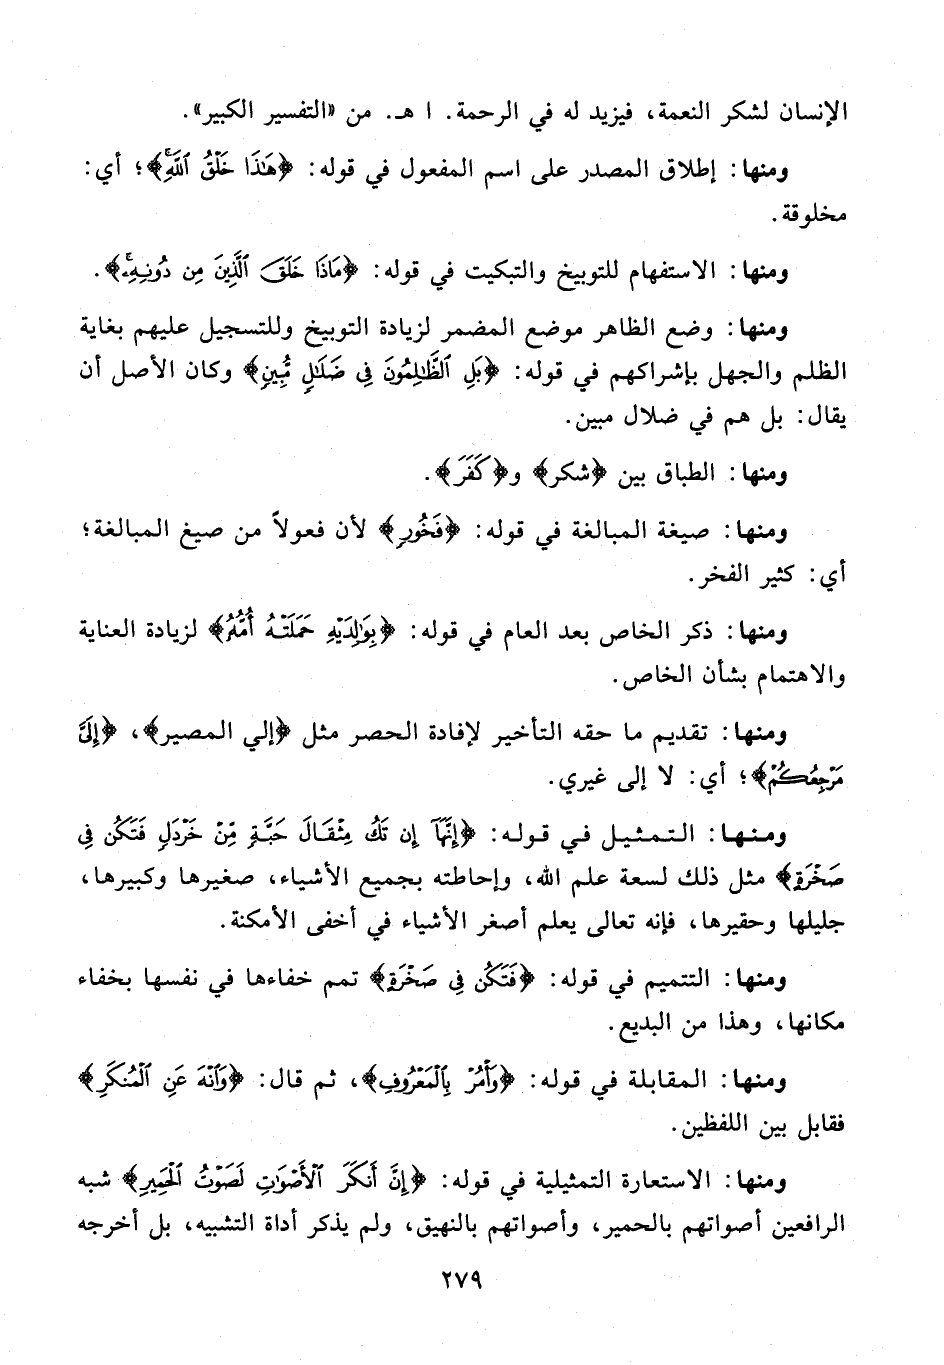 الإنسان لشكر النعمة، فيزيد له في الرحمة. ا هـ. من «التفسير الكبير».
ومنها: إطلاق المصدر على اسم المفعول في قوله: ﴿هَٰذَا خَلْقُ ٱللَّهِ﴾؛ أي:
مخلوقة.
ومنها: الاستفهام للتوبيخ والتبكيت في قوله: ﴿مَاذَا خَلَقَ ٱلَّذِينَ مِن دُونِهِۦ﴾.
ومنها: وضع الظاهر موضع المضمر لزيادة التوبيخ وللتسجيل عليهم بغاية
الظلم والجهل بإشراكهم في قوله: ﴿بَلِ ٱلظَّٰلِمُونَ فِى ضَلَٰلٍ مُّبِينٍ﴾ وكان الأصل أن
يقال: بل هم في ضلال مبين.
ومنها: الطباق بين ﴿شكر﴾ و﴿كَفَرَ﴾.
ومنها: صيغة المبالغة في قوله: ﴿فَخُورٍ﴾ لأن فعولاً من صيغ المبالغة؛
أي: كثير الفخر.
ومنها: ذكر الخاص بعد العام في قوله: ﴿بِوَٰلِدَيْهِ حَمَلَتْهُ أُمُّهُۥ﴾ لزيادة العناية
والاهتمام بشأن الخاص.
ومنها: تقديم ما حقه التأخير لإفادة الحصر مثل ﴿إلي المصير﴾، ﴿إِلَىَّ
مَرْجِعُكُمْ﴾؛ أي: لا إلى غيري.
ومنها: التمثيل في قوله: ﴿إِنَّهَآ إِن تَكُ مِثْقَالَ حَبَّةٍ مِّنْ خَرْدَلٍ فَتَكُن فِى
صَخْرَةٍ﴾ مثل ذلك لسعة علم الله، وإحاطته بجميع الأشياء، صغيرها وكبيرها،
جليلها وحقيرها، فإنه تعالى يعلم أصغر الأشياء في أخفى الأمكنة.
ومنها: التتميم في قوله: ﴿فَتَكُن فِى صَخْرَةٍ﴾ تمم خفاءها في نفسها بخفاء
مكانها، وهذا من البديع.
ومنها: المقابلة في قوله: ﴿وَأْمُرْ بِٱلْمَعْرُوفِ﴾، ثم قال: ﴿وَٱنْهَ عَنِ ٱلْمُنكَرِ﴾
فقابل بين اللفظين.
ومنها: الاستعارة التمثيلية في قوله: ﴿إِنَّ أَنكَرَ ٱلْأَصْوَٰتِ لَصَوْتُ ٱلْحَمِيرِ﴾ شبه
الرافعين أصواتهم بالحمير، وأصواتهم بالنهيق، ولم يذكر أداة التشبيه، بل أخرجه
٢٧٩